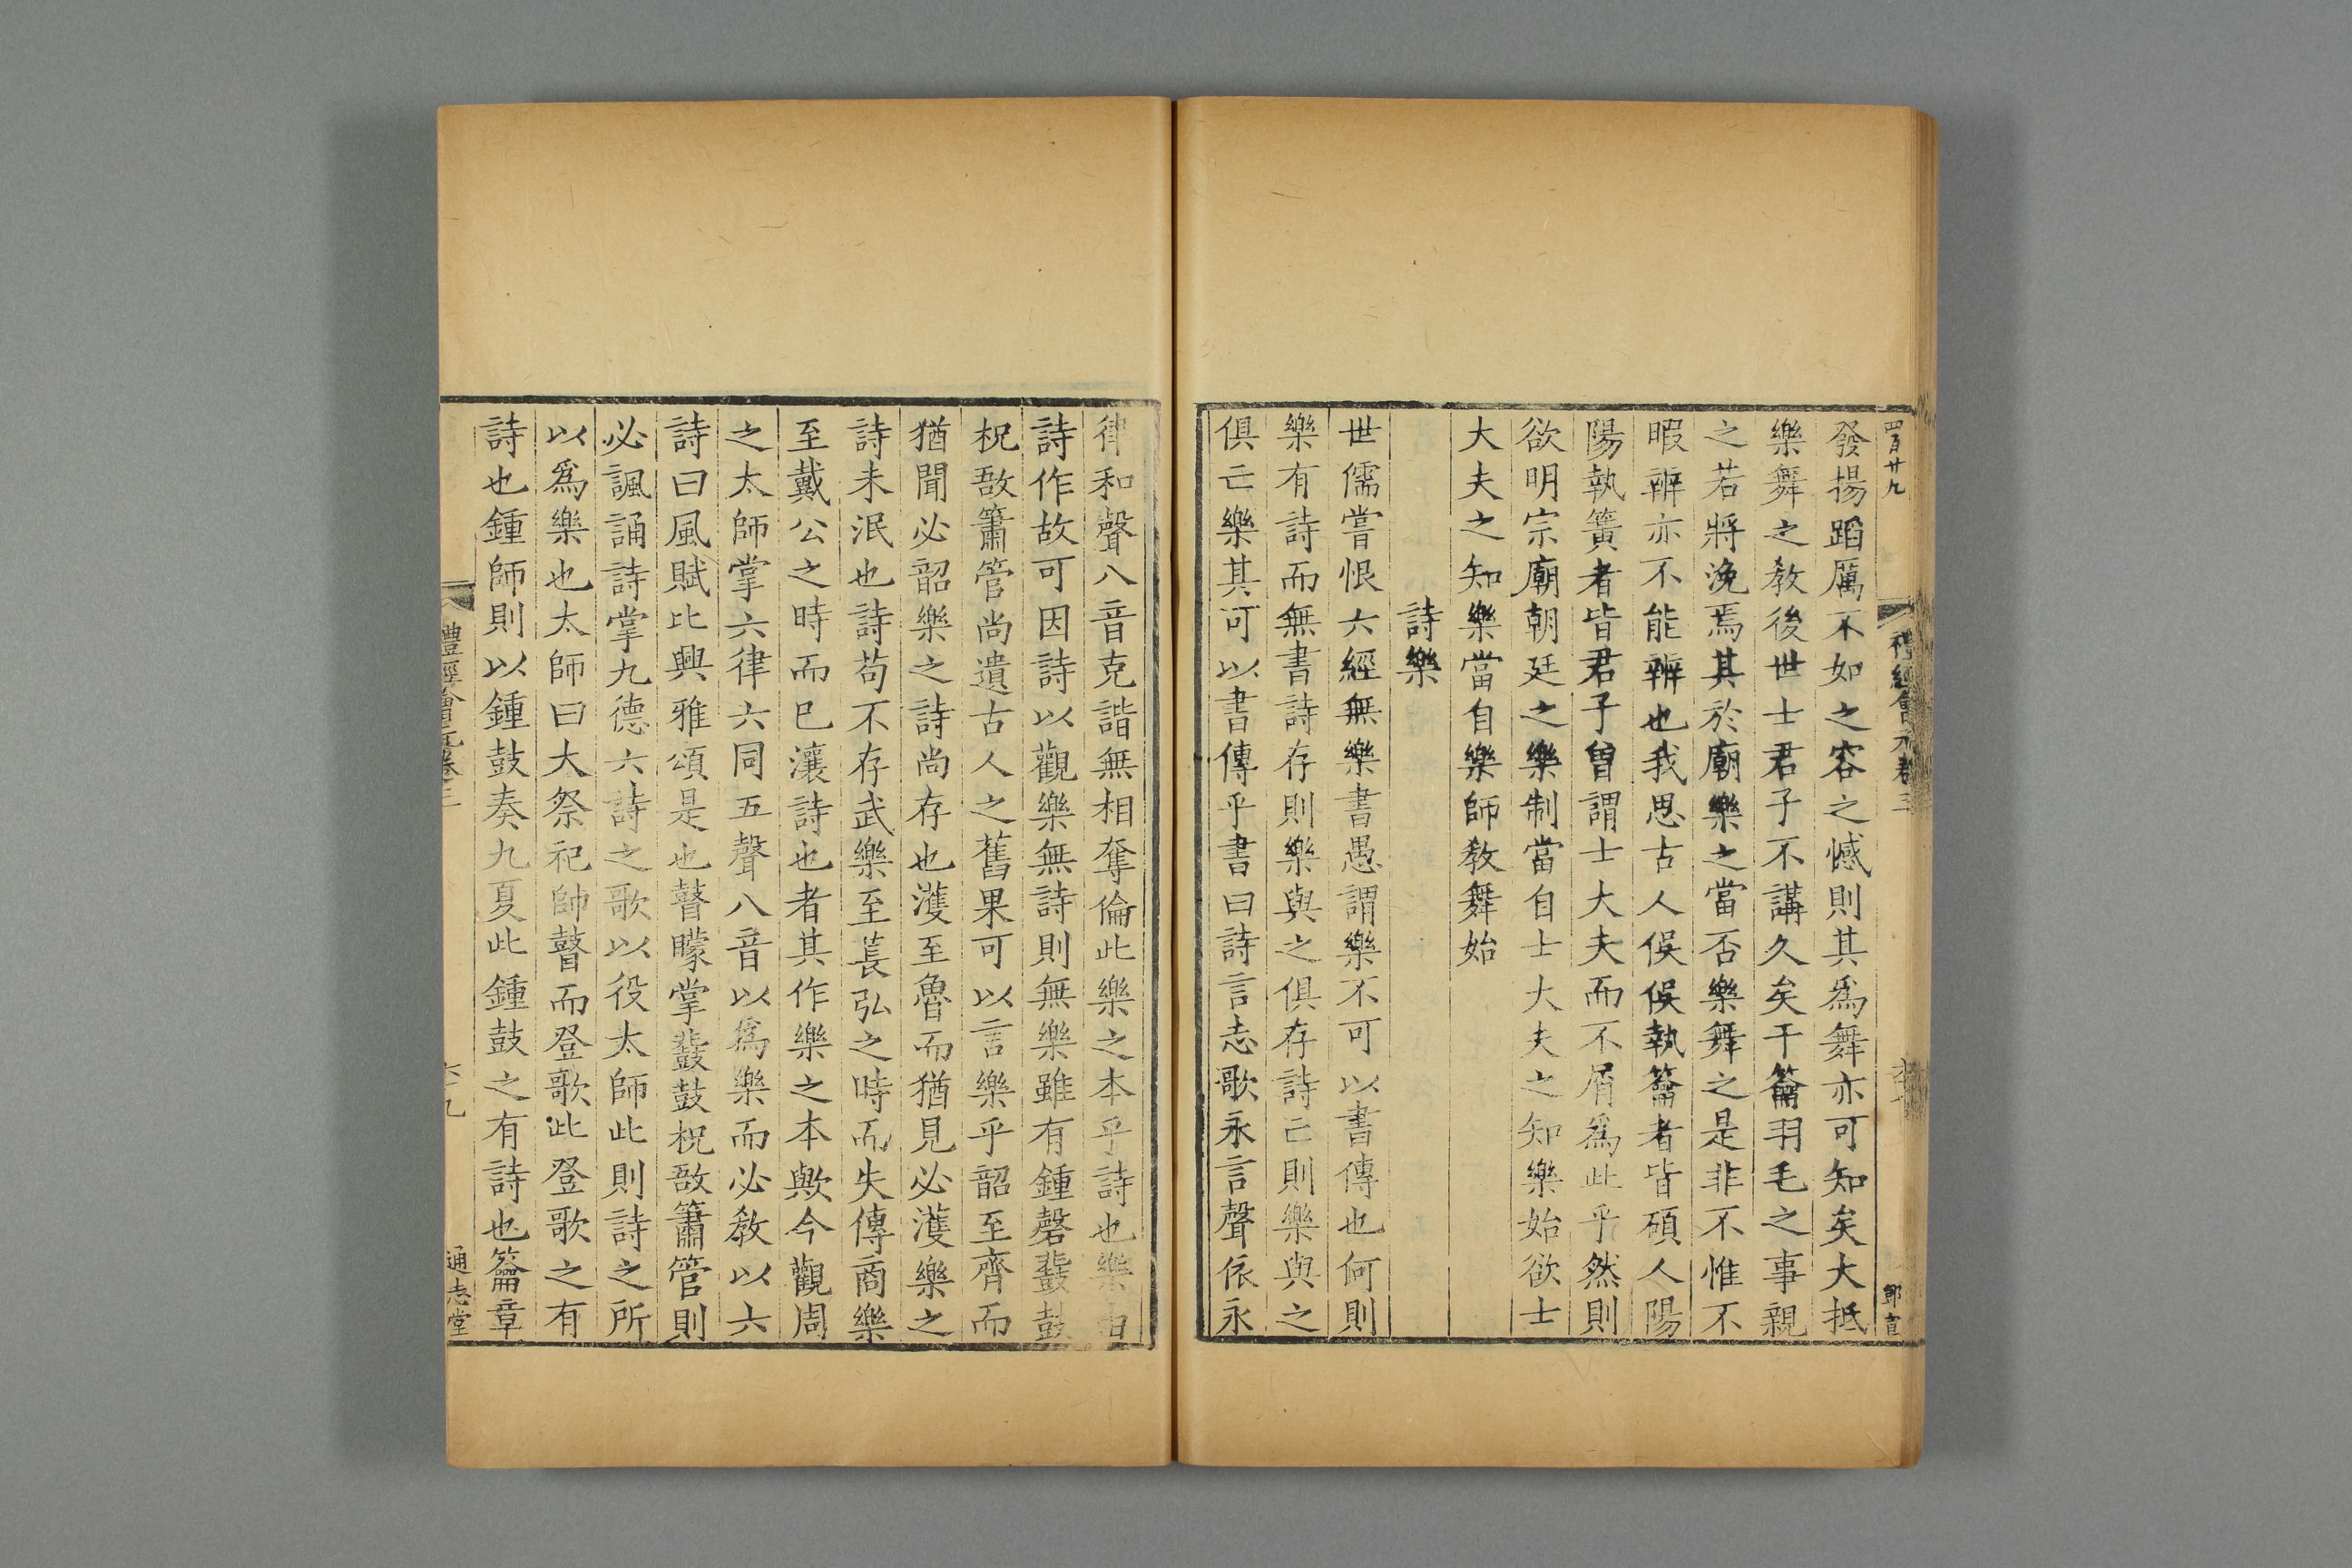 四百廿九
禮經會元卷三
鄧宣
發揚蹈厲不如之容之憾則其爲舞亦可知矣大抵
樂舞之敎後世士君子不講久矣干籥羽毛之事親
之若將浼焉其於廟樂之當否樂舞之是非不惟不
暇辨亦不能辨也我思古人俁俁執籥者皆碩人陽
陽執簧者皆君子曽謂士大夫而不屑爲此乎然則
欲明宗廟朝廷之樂制當自士大夫之知樂始欲士
大夫之知樂當自樂師敎舞始
詩樂
世儒嘗恨六經無樂書愚謂樂不可以書傳也何則
樂有詩而無書詩存則樂與之俱存詩亡則樂與之
俱亡樂其可以書傳乎書曰詩言志歌永言聲依永
律和聲八音克諧無相奪倫此樂之本乎詩也樂由
詩作故可因詩以觀樂無詩則無樂雖有鍾磬鼗鼓
柷敔簫管尚遺古人之舊果可以言樂乎韶至齊而
猶聞必韶樂之詩尚存也濩至魯而猶見必濩樂之
詩未泯也詩苟不存武樂至萇弘之時而失傳商樂
至戴公之時而巳瀼詩也者其作樂之本歟今觀周
之太師掌六律六同五聲八音以爲樂而必敎以六
詩曰風賦比興雅頌是也瞽矇掌鼗鼓柷敔簫管則
必諷誦詩掌九德六詩之歌以役太師此則詩之所
以爲樂也太師曰大祭祀帥瞽而登歌此登歌之有
詩也鍾師則以鍾鼓奏九夏此鍾鼓之有詩也籥章
禮經會元卷三
六十九
通志堂